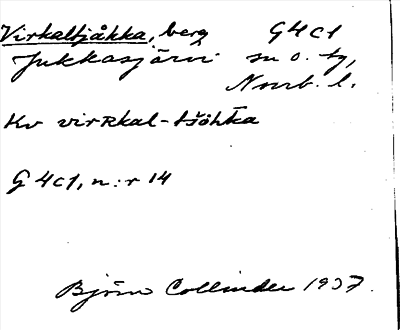 Virkaltjåkka, berg G4c1
Jukkasjärvi sn o. tg,
Norrb. l.
Kv virkkal-tšohka
G 4c1, n:r 14
Björn Collinder 1937.